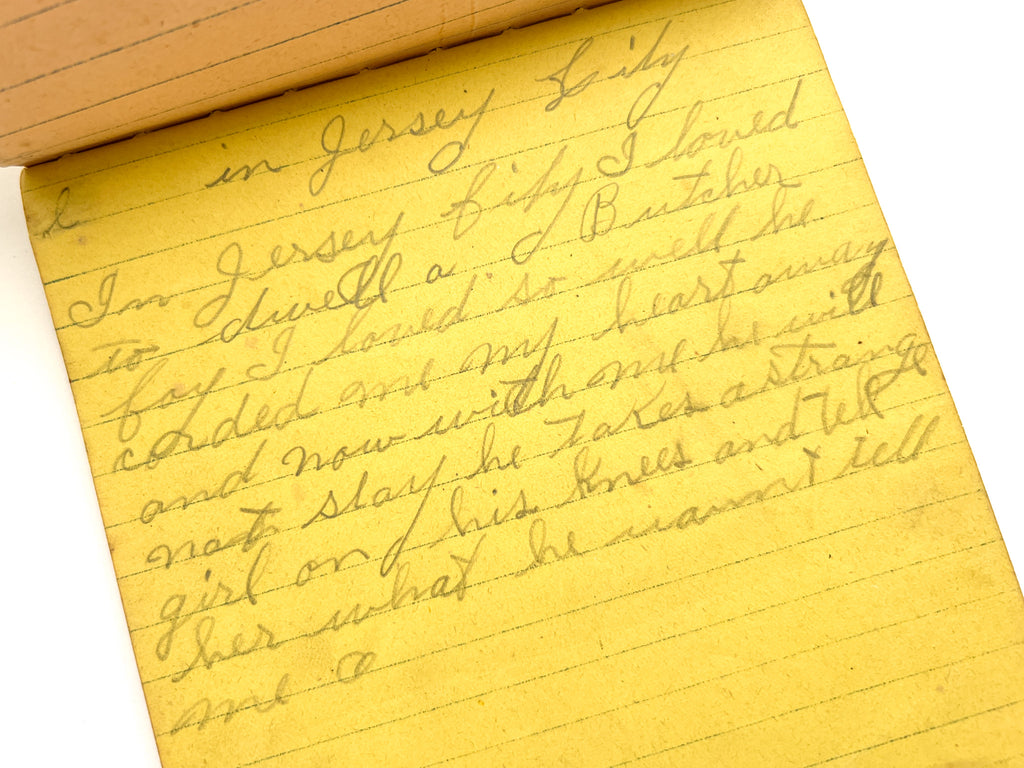 in Jersey City
In Jersey City I loved
to dwell a Butcher
boy I loved so well he
corded me my heart away
and now with me he will
not stay he takes a strange
girl on his knees and tell
her what he wannt tell
me